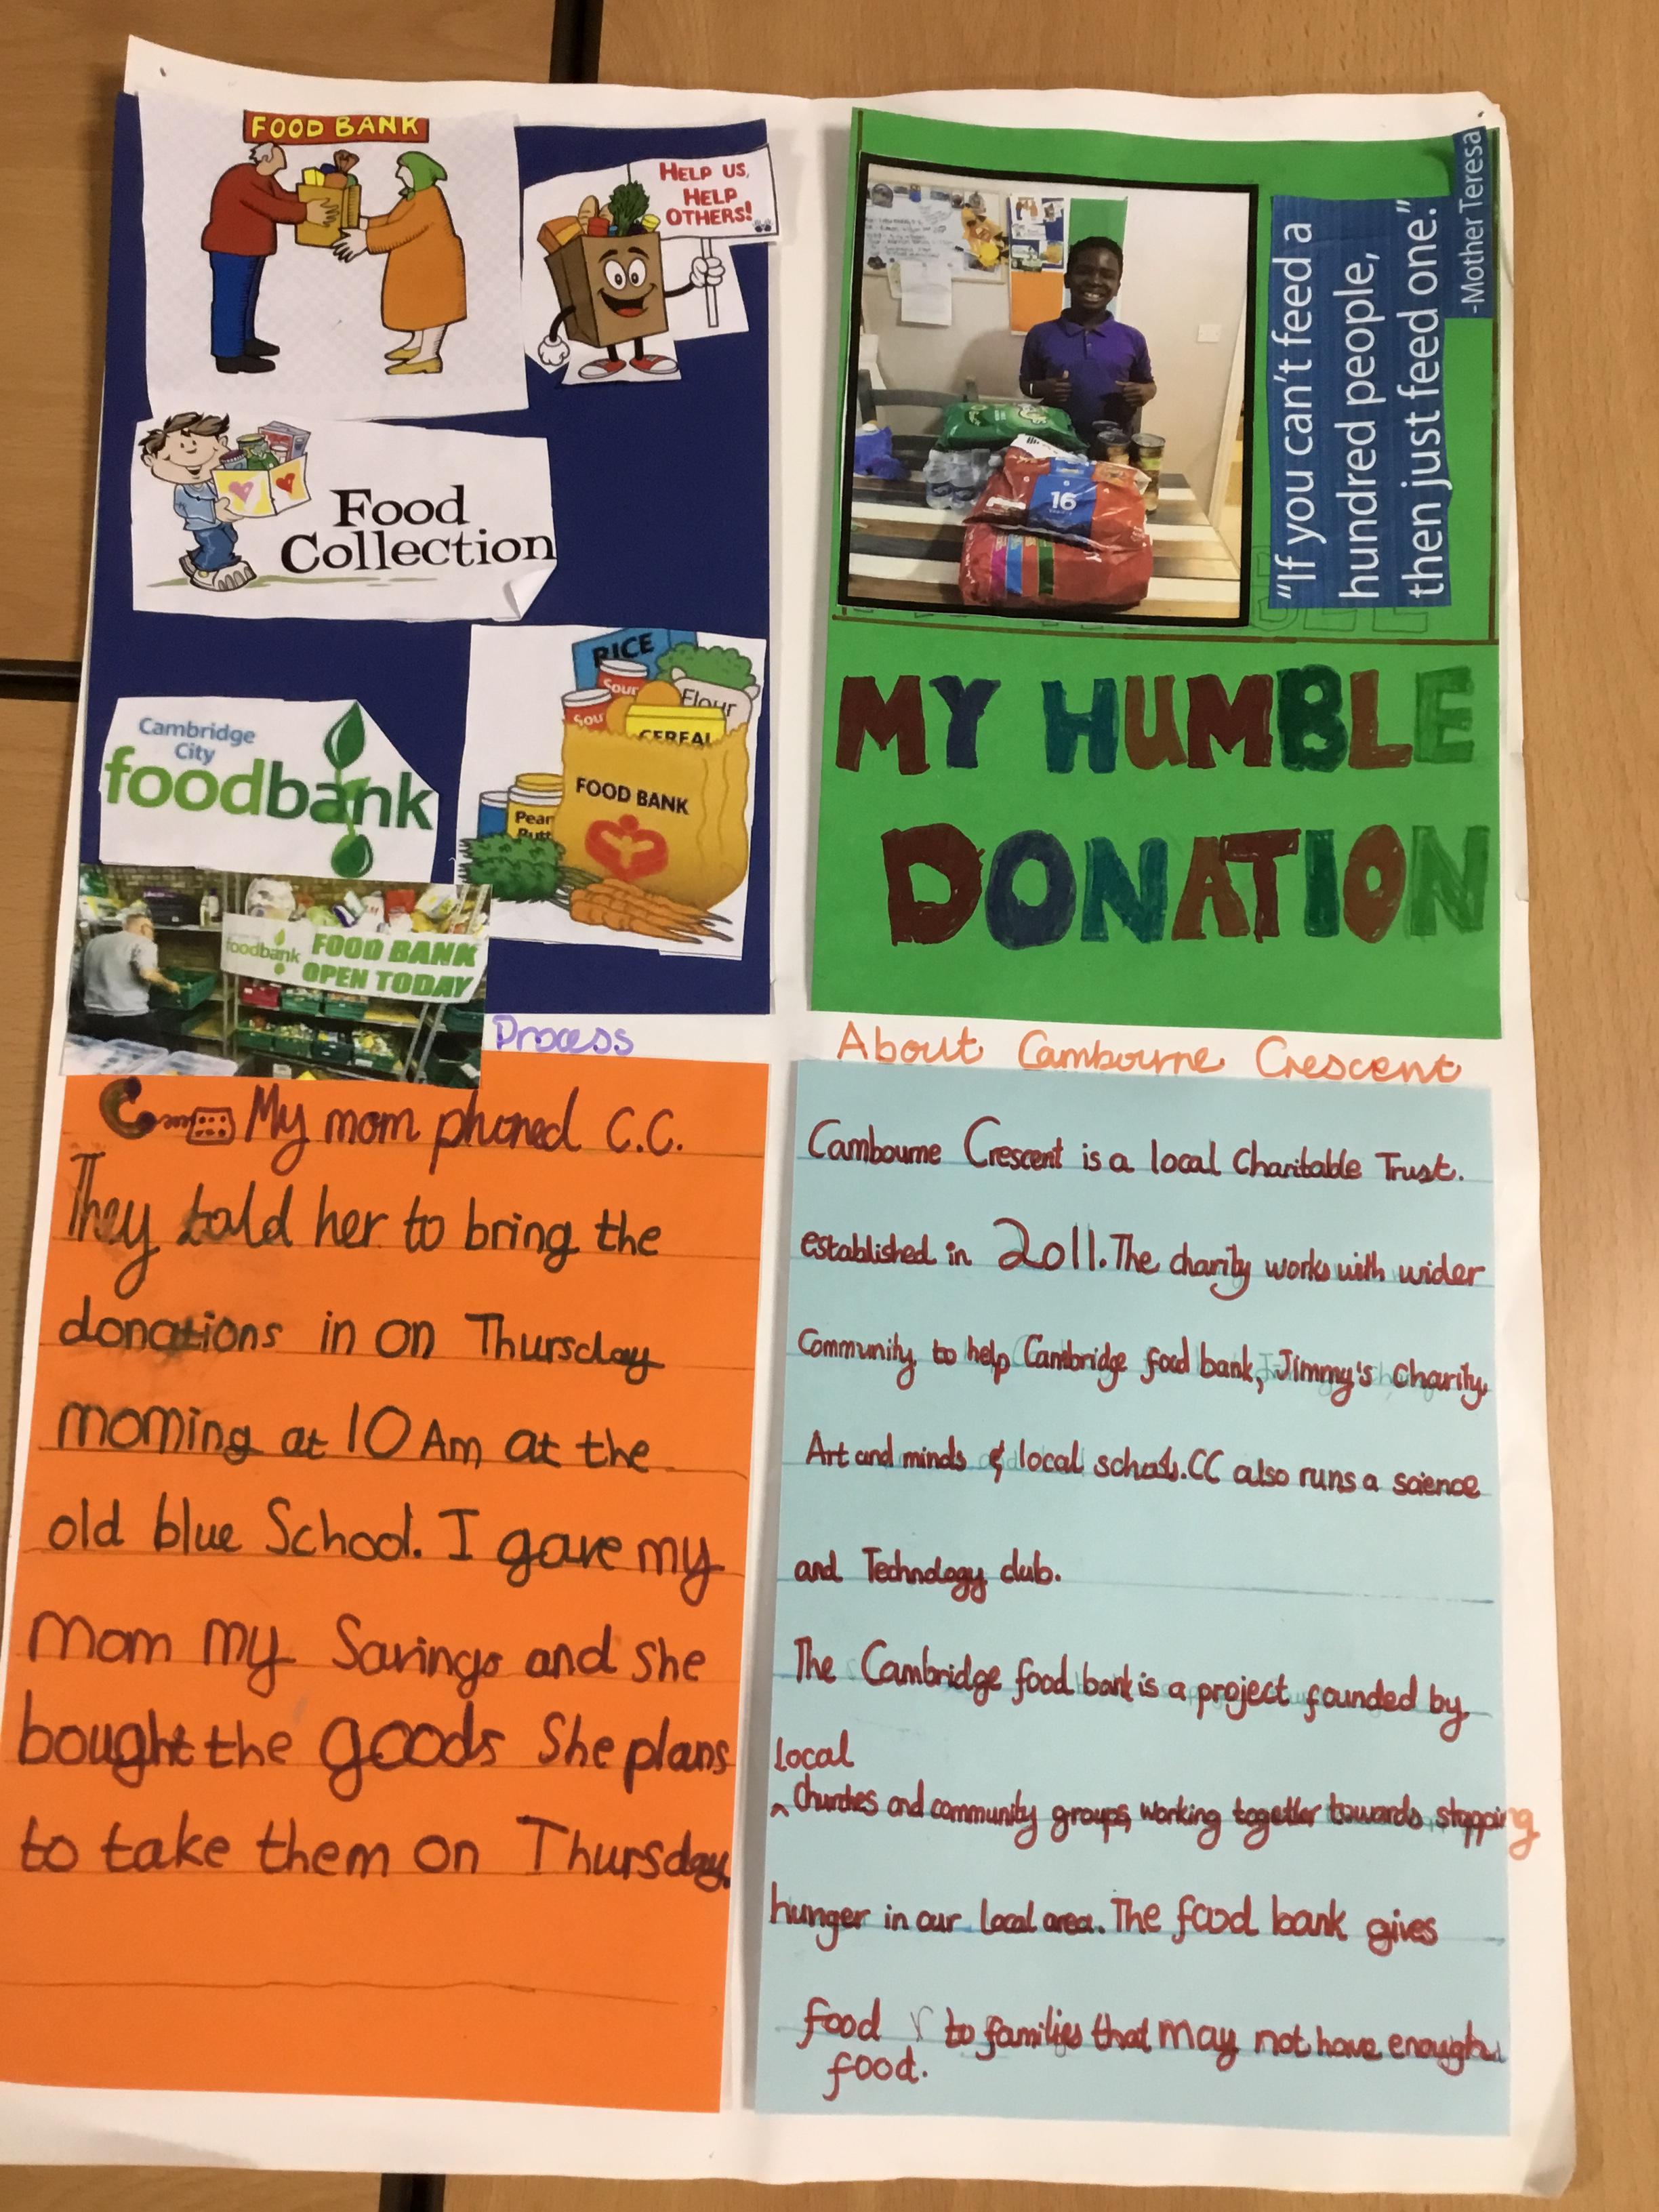 FOOD BANK
HELP US,
HELP
OTHERS!
Food
Collection
Cambridge
City
foodbank
RICE
Soup
Sou
Flour
CEREAL
FOOD BANK
Pean
Butt
foodbank
FOOD BANK
OPEN TODAY
16
"If you can't feed a
hundred people,
then just feed one."
-Mother Teresa
MY HUMBLE
DONATION
Process
My mom phoned C.C.
They told her to bring the
donations in on Thursday
morning at 10 Am at the
old blue School. I gave my
Mom my Savings and she
bought the goods She plans
to take them on Thursday.
About Cambourne Crescent
Cambourne Crescent is a local Charitable Trust.
established in 2011. The charity works with wider
Community to help Cambridge food bank, Jimmy's Charity,
Art and minds & local schools. CC also runs a science
and Technology club.
The Cambridge food bank is a project founded by
local
^ Churches and community groups, working together towards stopping
hunger in our local area. The food bank gives
food to families that may not have enough
food.